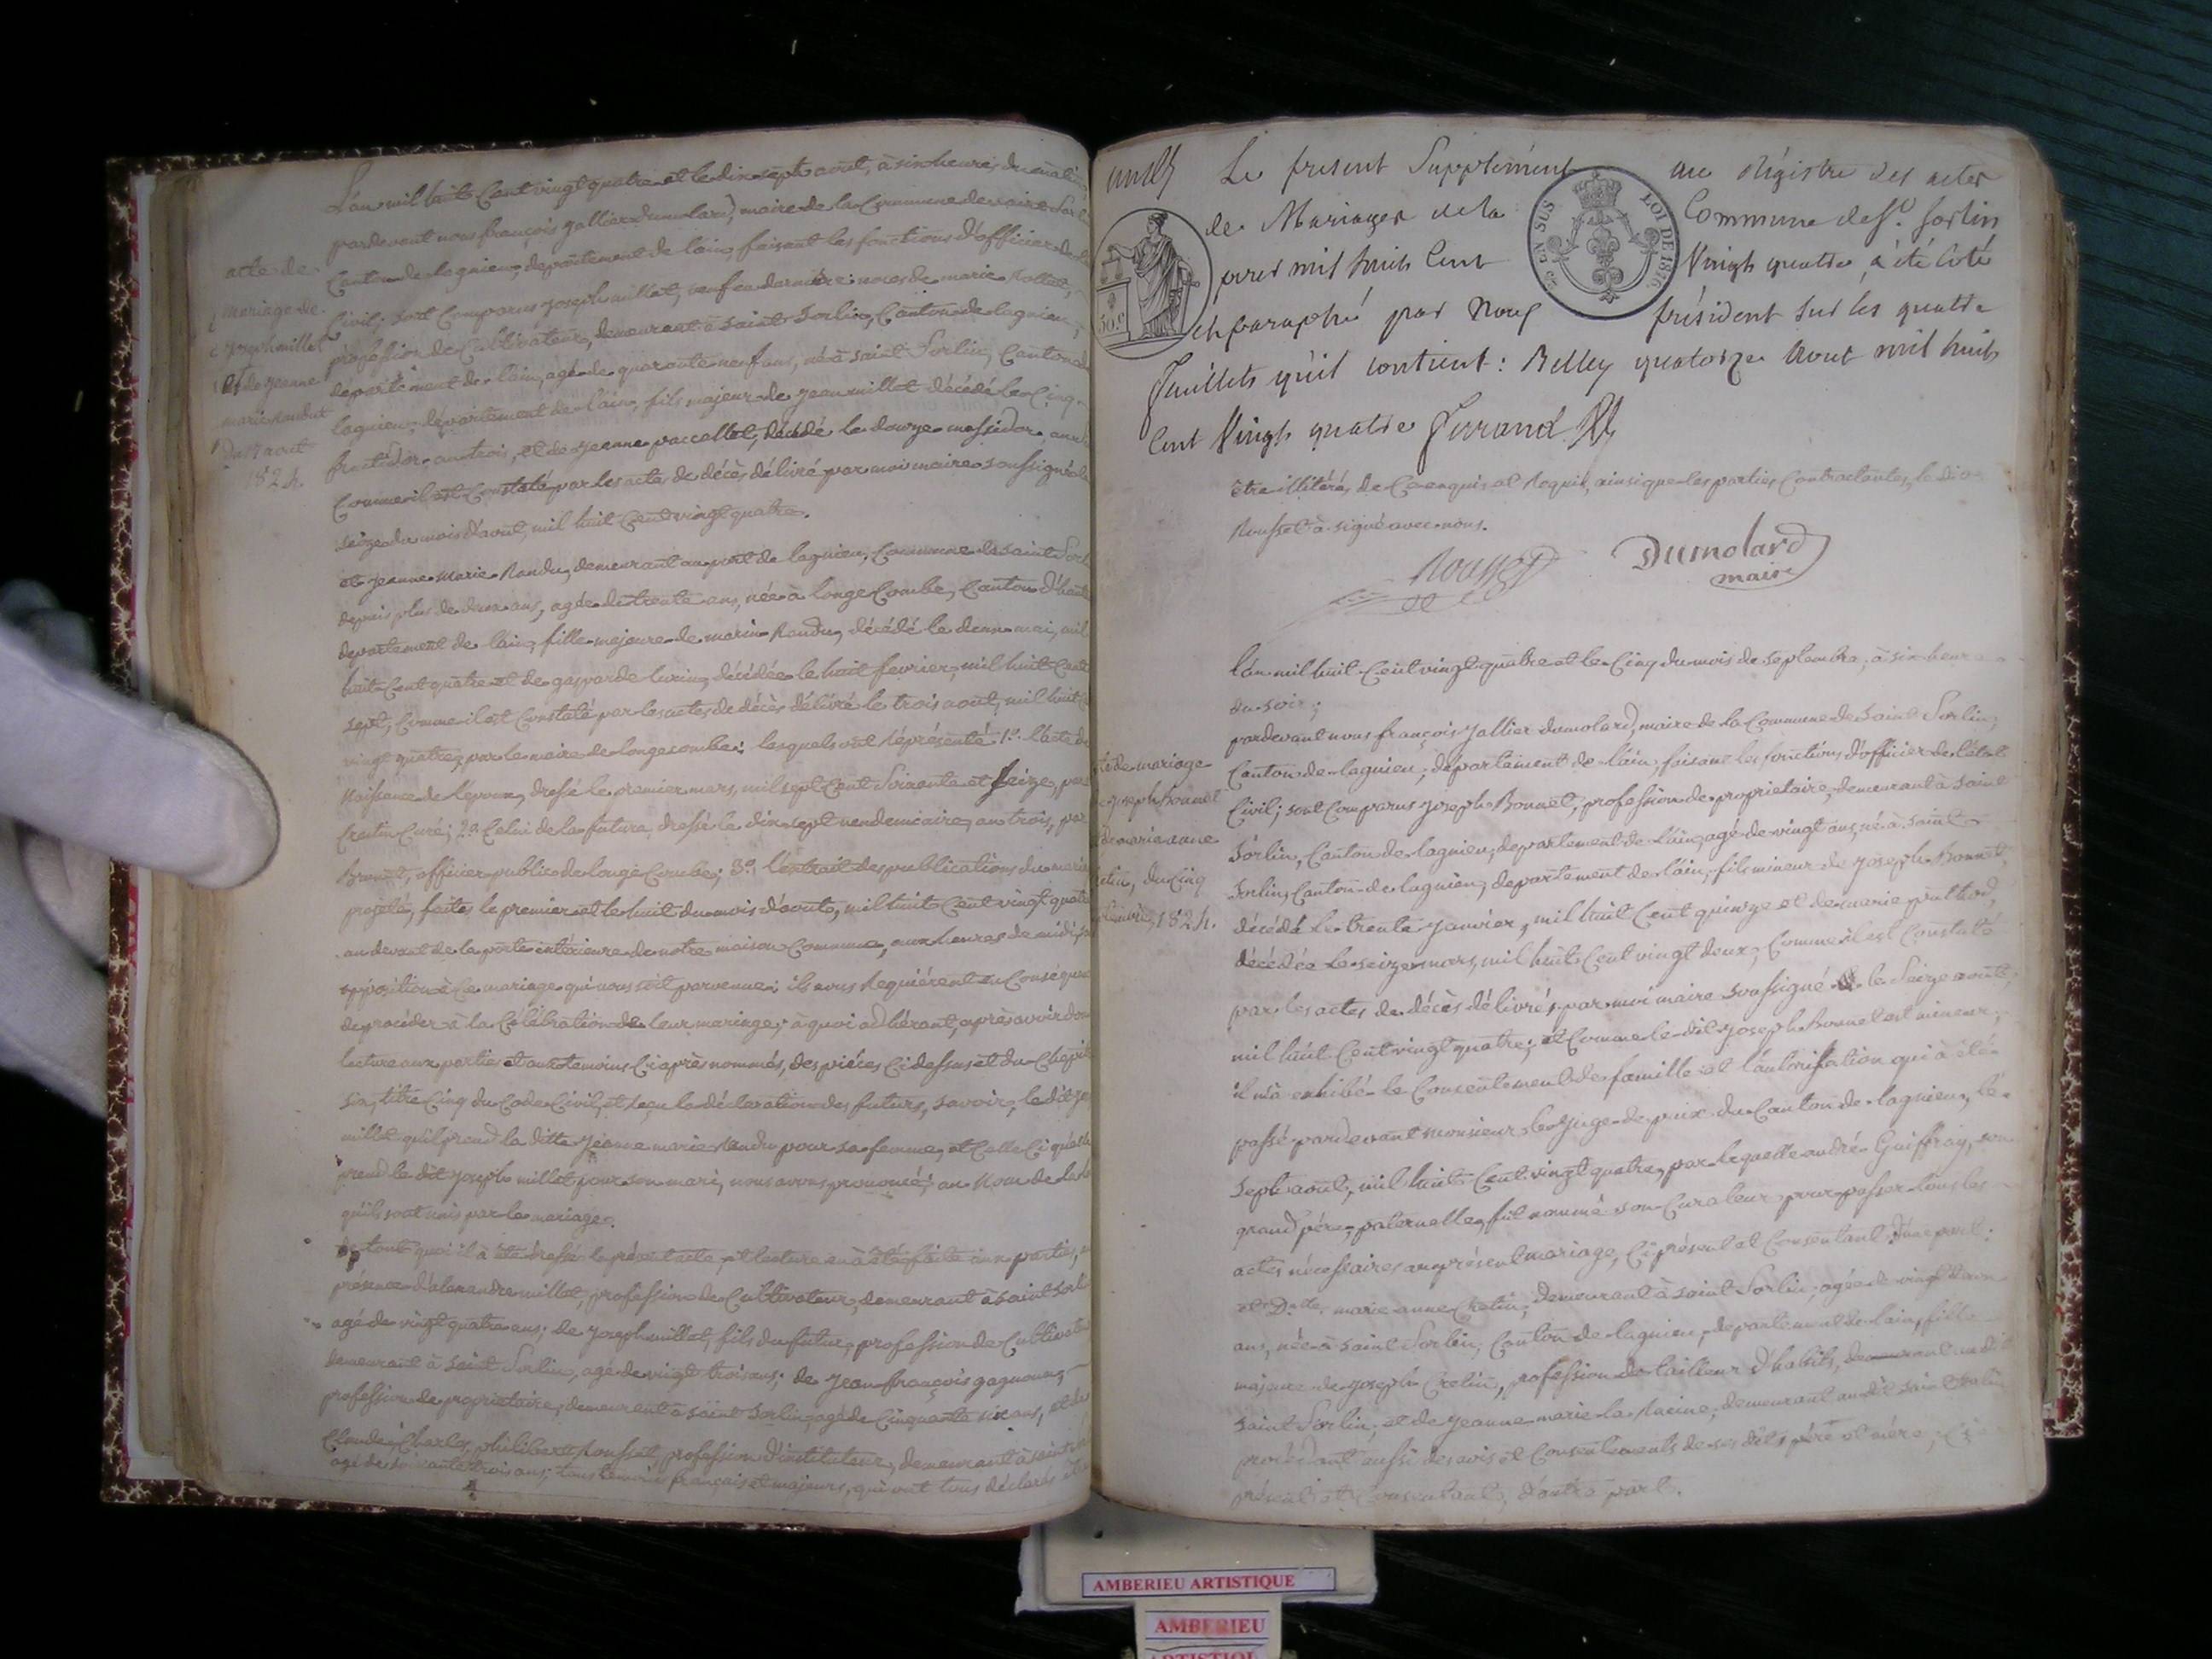 L'an mil huit Cent vingt quatre et le dix sept août, à six heures du matin
pardevant nous françois jallier dumolard, maire de la Commune de saint Sorl
Canton de lagnieu, département de l'ain, faisant les fonctions d'officier de l
Civil; sont Comparus joseph millet, veuf en dernière noces de marie
profession de Cultivateur, demeurant à saint Sorlin, Canton de lagnieu,
département de l'ain, agé de quarante neuf ans, né à saint Sorlin, Canton de
lagnieu, département de l'ain, fils majeur de jean millet décédé le Cinq
fructidor an trois, et de jeanne paccellet, décédé le douze messidor, an
Comme il est Constaté par les actes de décès délivré par moi maire soussigné le
seize du mois d'août, mil huit Cent vingt quatre.
et jeanne marie Randu, demeurant au port de lagnieu, Commune de saint Sorl
depuis plus de deux ans, agée de trente ans, née à longe Combe, Canton d'haute
département de l'ain, fille majeure de marin Randu, décédé le deux mai, mil
huit Cent quatre et de gasparde lurin, décédée le huit fevrier, mil huit Cent
sept, Comme il est Constaté par les actes de décès délivré le trois août, mil huit C
vingt quatre, par le maire de longecombe: lesquels ont réprésenté 1º. l'acte de
Naissance de l'époux, dressé le premier mars, mil sept Cent Soixante et Seize, par
Curé; 2º Celui de la future, dressé le dix sept vendemiaire, an trois, par
officier public de longe Combe; 3º l'extrait des publications du mari
projeté, faites le premier et le huit du mois d'août, mil huit Cent vingt quatre
au devant de la porte extérieure de notre maison Commune, aux heures de midi, s
opposition à Ce mariage qui nous soit parvenue; ils nous Requiérent en Conséquen
de procéder à la Célébration de leur mariage; à quoi adhérant, après avoir don
lecture aux parties et aux temoins Ci après nommés, des pièces Ci dessus et du Chapit
six, titre Cinq du Code Civil, et reçu la déclaration des futurs, savoir, le dit jo
millet qu'il prend la ditte jeanne marie Randu pour sa femme, et Celle Ci qu'elle
prend le dit joseph millet pour son mari, nous avons prononcé, au Nom de la loi
qu'ils sont unis par le mariage.
De tout quoi il à été dressé le présent acte, et lecture en à été faite aux parties, en
présence d'alexandre millet, profession de Cultivateur, demeurant à saint Sorli
agé de vingt quatre ans; de joseph millet, fils du futur, profession de Cultivateu
demeurant à saint Sorlin, agé de vingt trois ans; de jean françois gagneur,
profession de proprietaire, demeurant à saint Sorlin, agé de Cinquante six ans, et de
Claude Charles philibert Rousset, profession d'instituteur, demeurant à saint
agé de soixante trois ans; tous temoins français et majeurs, qui ont tous déclarés
acte de
mariage de
joseph millet
Et de jeanne
marie Randu
Du 17 août
1824.
Le present Supplément au Régistre des actes
de Mariages de la Commune de St. Sorlin
pour mil huit Cent Vingt quatre, à été Coté
et paraphé par Nous président sur les quatre
feuillets qu'il contient: Belley quatorze Aout mil huit
Cent Vingt quatre Ferrand
EN SUS
LOI DE 1816
50 c
être illitérés de Ce enquis et Requis, ainsi que les parties Contractantes, le dit
Rousset à signé avec nous.
Rousset
Dumolard
maire
l'an mil huit Cent vingt quatre et le Cinq du mois de septembre, à six heures
du soir;
pardevant nous françois jallier dumolard, maire de la Commune de Saint Sorlin,
Canton de lagnieu, département de l'ain, faisant les fonctions d'officier de l'état
Civil; sont Comparus joseph Bonnet, profession de proprietaire, demeurant à saint
Sorlin, Canton de lagnieu, departement de l'ain, agé de vingt ans, né à saint
Sorlin, Canton de lagnieu, departement de l'ain, fils mineur de joseph Bonnet,
décédé le trente janvier, mil huit Cent quinze et de marie
décédée le seize mars, mil huit Cent vingt deux, Comme il est Constaté
par les actes de décès délivrés par moi maire soussigné le Seize août,
mil huit Cent vingt quatre; et Comme le dit joseph Bonnet est mineur;
il m'à exhibé le Consentement de famille et l'autorisation qui à été
passé pardevant Monsieur le juge de paix du Canton de lagnieu, le
sept août, mil huit Cent vingt quatre, par lequelle andré Guiffray, son
grand père paternelle, fut nommé son Curateur pour passer tous les
actes nécessaires au présent mariage, Ci présent et Consentant d'une part;
et Dlle. marie anne Cretin, demeurant à saint Sorlin, agée de vingt deux
ans, née à saint Sorlin, Canton de lagnieu, departement de l'ain, fille
majeure de joseph Cretin, profession de tailleur d'habits, demeurant au dit
saint Sorlin, et de jeanne marie la Racine, demeurant au dit saint Sorlin
procédant aussi des avis et Consentements de ses dits père et mère, Ci
présent et Consentant, d'autre part.
te de mariage
joseph Bonnet
de marie anne
etin, du Cinq
tembre, 1824.
AMBERIEU ARTISTIQUE
AMBERIEU
ARTISTIQUE